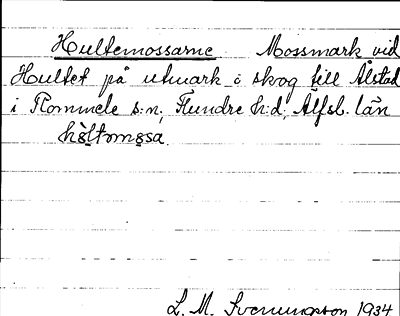 Hultemossarne Mossmark vid
Hultet på utmark i skog till Ålstad
i Rommele s:n, Flundre h:d, Älfsb. län
hòltomosa
L. M. Svenungsson 1934